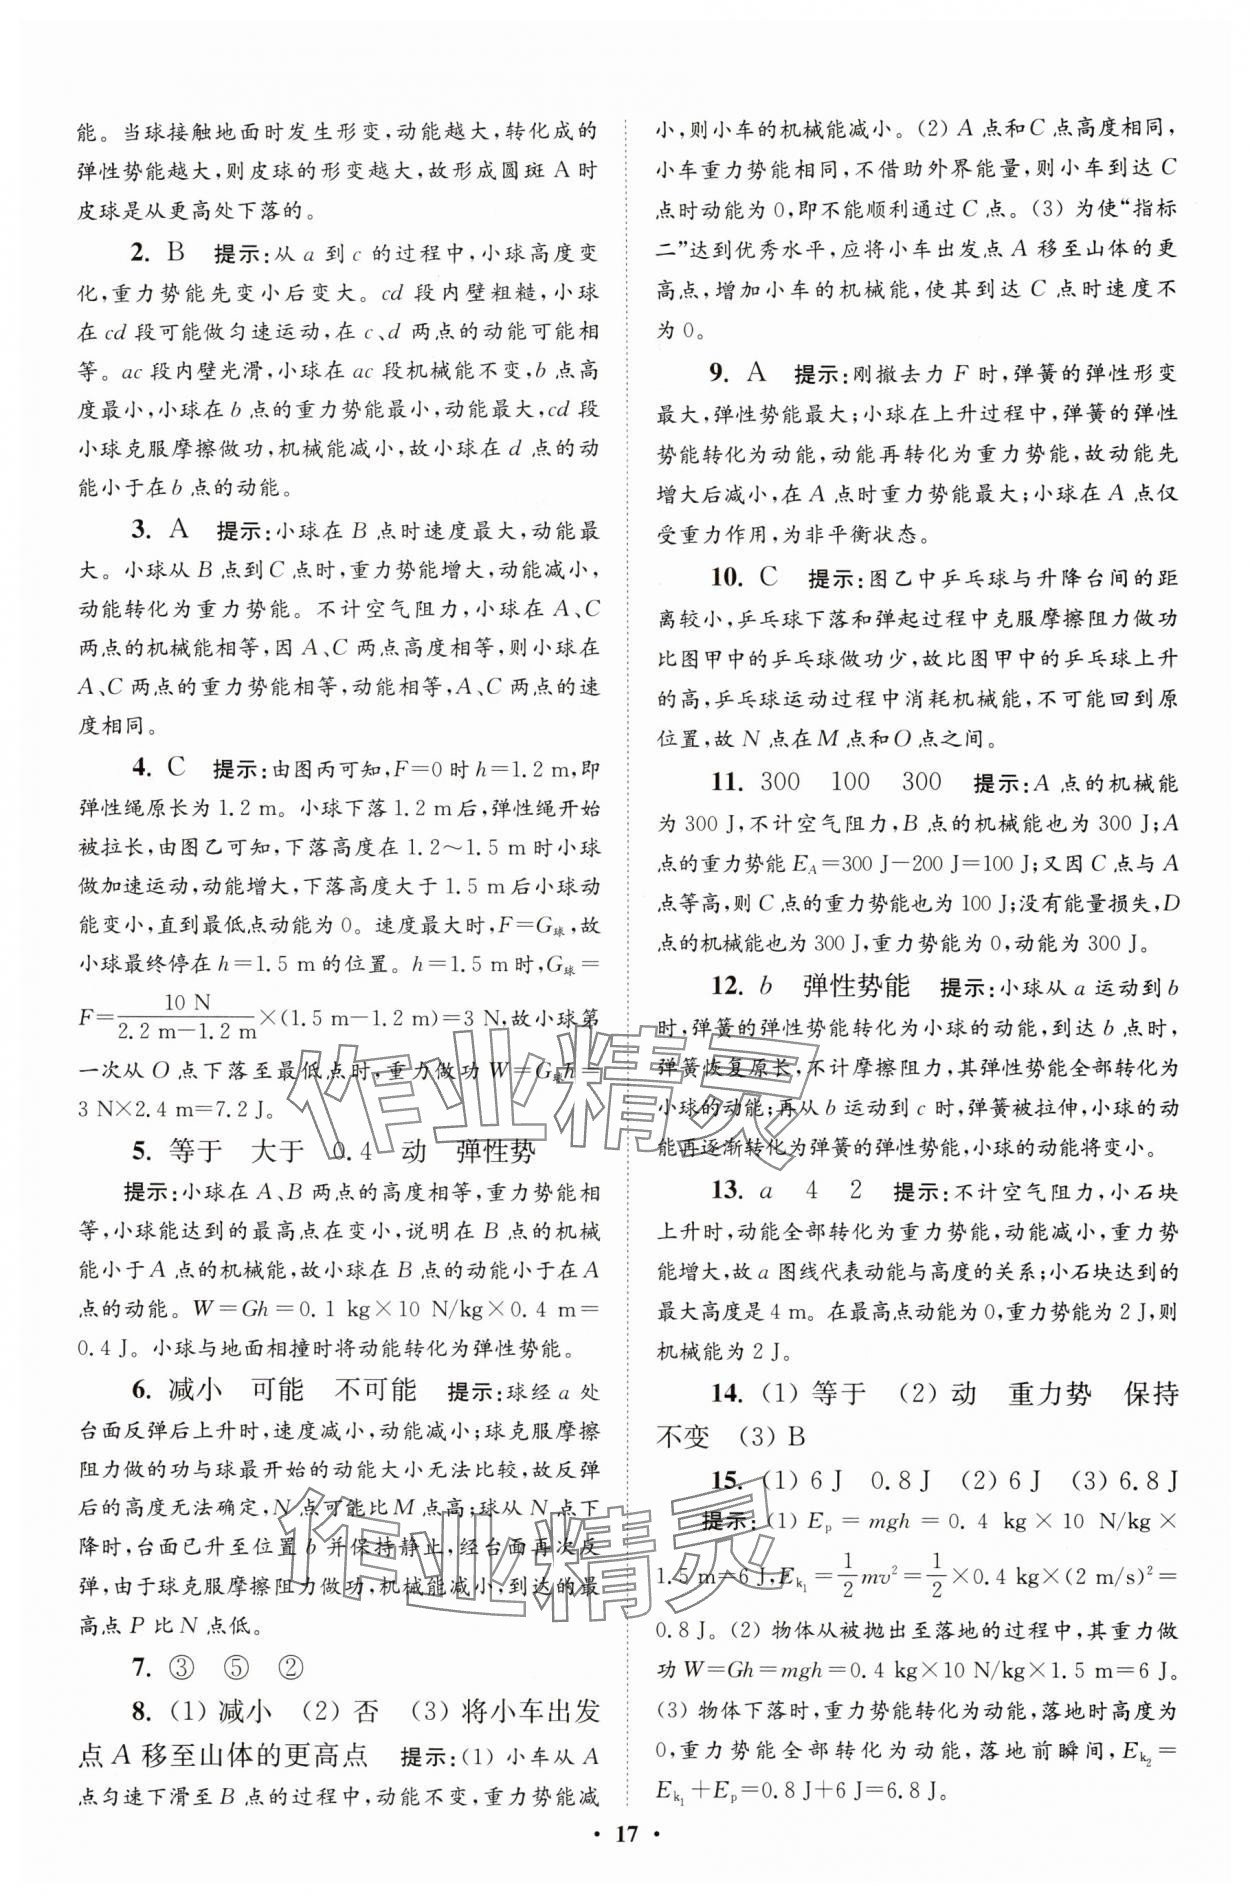 能。当球接触地面时发生形变,动能越大,转化成的
弹性势能越大,则皮球的形变越大,故形成圆斑 A 时
皮球是从更高处下落的。
2. B 提示:从 a 到 c 的过程中,小球高度变
化,重力势能先变小后变大。cd 段内壁粗糙,小球
在 cd 段可能做匀速运动,在 c、d 两点的动能可能相
等。ac 段内壁光滑,小球在 ac 段机械能不变,b 点高
度最小,小球在 b 点的重力势能最小,动能最大,cd 段
小球克服摩擦做功,机械能减小,故小球在 d 点的动
能小于在 b 点的动能。
3. A 提示:小球在 B 点时速度最大,动能最
大。小球从 B 点到 C 点时,重力势能增大,动能减小,
动能转化为重力势能。不计空气阻力,小球在 A、C
两点的机械能相等,因 A、C 两点高度相等,则小球在
A、C 两点的重力势能相等,动能相等,A、C 两点的速
度相同。
4. C 提示:由图丙可知,F=0 时 h=1.2 m,即
弹性绳原长为 1.2 m。小球下落 1.2 m 后,弹性绳开始
被拉长,由图乙可知,下落高度在 1.2～1.5 m 时小球
做加速运动,动能增大,下落高度大于 1.5 m 后小球动
能变小,直到最低点动能为 0。速度最大时,F=G球,故
小球最终停在 h=1.5 m 的位置。h=1.5 m 时,G球=
F=10 N/(2.2 m−1.2 m)×(1.5 m−1.2 m)=3 N,故小球第
一次从 O 点下落至最低点时,重力做功 W=G球h=
3 N×2.4 m=7.2 J。
5. 等于 大于 0.4 动 弹性势
提示:小球在 A、B 两点的高度相等,重力势能相
等,小球能达到的最高点在变小,说明在 B 点的机械
能小于 A 点的机械能,故小球在 B 点的动能小于在 A
点的动能。W=Gh=0.1 kg×10 N/kg×0.4 m=
0.4 J。小球与地面相撞时将动能转化为弹性势能。
6. 减小 可能 不可能 提示:球经 a 处
台面反弹后上升时,速度减小,动能减小;球克服摩擦
阻力做的功与球最开始的动能大小无法比较,故反弹
后的高度无法确定,N 点可能比 M 点高;球从 N 点下
降时,台面已升至位置 b 并保持静止,经台面再次反
弹,由于球克服摩擦阻力做功,机械能减小,到达的最
高点 P 比 N 点低。
7. ③ ⑤ ②
8. (1) 减小 (2) 否 (3) 将小车出发
点 A 移至山体的更高点 提示:(1) 小车从 A
点匀速下滑至 B 点的过程中,动能不变,重力势能减
小,则小车的机械能减小。(2) A 点和 C 点高度相同,
小车重力势能相同,不借助外界能量,则小车到达 C
点时动能为 0,即不能顺利通过 C 点。(3) 为使“指标
二”达到优秀水平,应将小车出发点 A 移至山体的更
高点,增加小车的机械能,使其到达 C 点时速度不
为 0。
9. A 提示:刚撤去力 F 时,弹簧的弹性形变
最大,弹性势能最大;小球在上升过程中,弹簧的弹性
势能转化为动能,动能再转化为重力势能,故动能先
增大后减小,在 A 点时重力势能最大;小球在 A 点仅
受重力作用,为非平衡状态。
10. C 提示:图乙中乒乓球与升降台间的距
离较小,乒乓球下落和弹起过程中克服摩擦阻力做功
比图甲中的乒乓球做功少,故比图甲中的乒乓球上升
的高,乒乓球运动过程中消耗机械能,不可能回到原
位置,故 N 点在 M 点和 O 点之间。
11. 300 100 300 提示:A 点的机械能
为 300 J,不计空气阻力,B 点的机械能也为 300 J;A
点的重力势能 E_A=300 J−200 J=100 J;又因 C 点与 A
点等高,则 C 点的重力势能也为 100 J;没有能量损失,D
点的机械能也为 300 J,重力势能为 0,动能为 300 J。
12. b 弹性势能 提示:小球从 a 运动到 b
时,弹簧的弹性势能转化为小球的动能,到达 b 点时,
弹簧恢复原长,不计摩擦阻力,其弹性势能全部转化为
小球的动能;再从 b 运动到 c 时,弹簧被拉伸,小球的动
能再逐渐转化为弹簧的弹性势能,小球的动能将变小。
13. a 4 2 提示:不计空气阻力,小石块
上升时,动能全部转化为重力势能,动能减小,重力势
能增大,故 a 图线代表动能与高度的关系;小石块达到的
最大高度是 4 m。在最高点动能为 0,重力势能为 2 J,则
机械能为 2 J。
14. (1) 等于 (2) 动 重力势 保持
不变 (3) B
15. (1) 6 J 0.8 J (2) 6 J (3) 6.8 J
提示:(1) Eₚ=mgh=0.4 kg×10 N/kg×
1.5 m=6 J,E_k₁=1/2mv²=1/2×0.4 kg×(2 m/s)²=
0.8 J。(2) 物体从被抛出至落地的过程中,其重力做
功 W=Gh=mgh=0.4 kg×10 N/kg×1.5 m=6 J。
(3) 物体下落时,重力势能转化为动能,落地时高度为
0,重力势能全部转化为动能,落地前瞬间,E_k₂=
E_k₁+Eₚ=0.8 J+6 J=6.8 J。
• 17 •
作业精灵
作业精灵